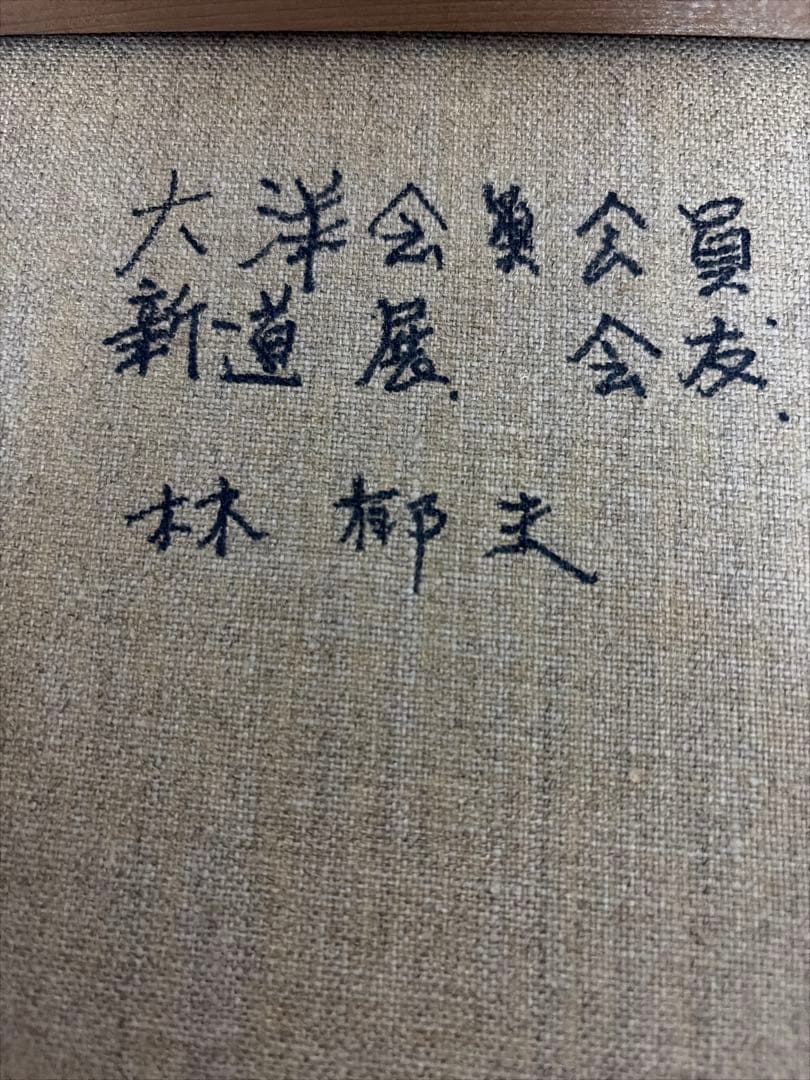 大洋会 会員
新道展 会友
林郁夫